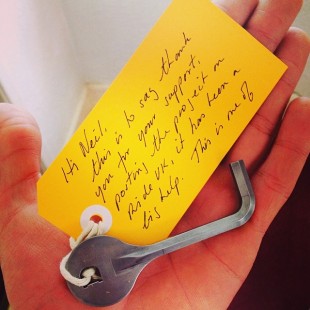 Hi Neil,
this is to say thank
you for your support,
posting the project on
Ride UK, it has been a
big help. This is one of